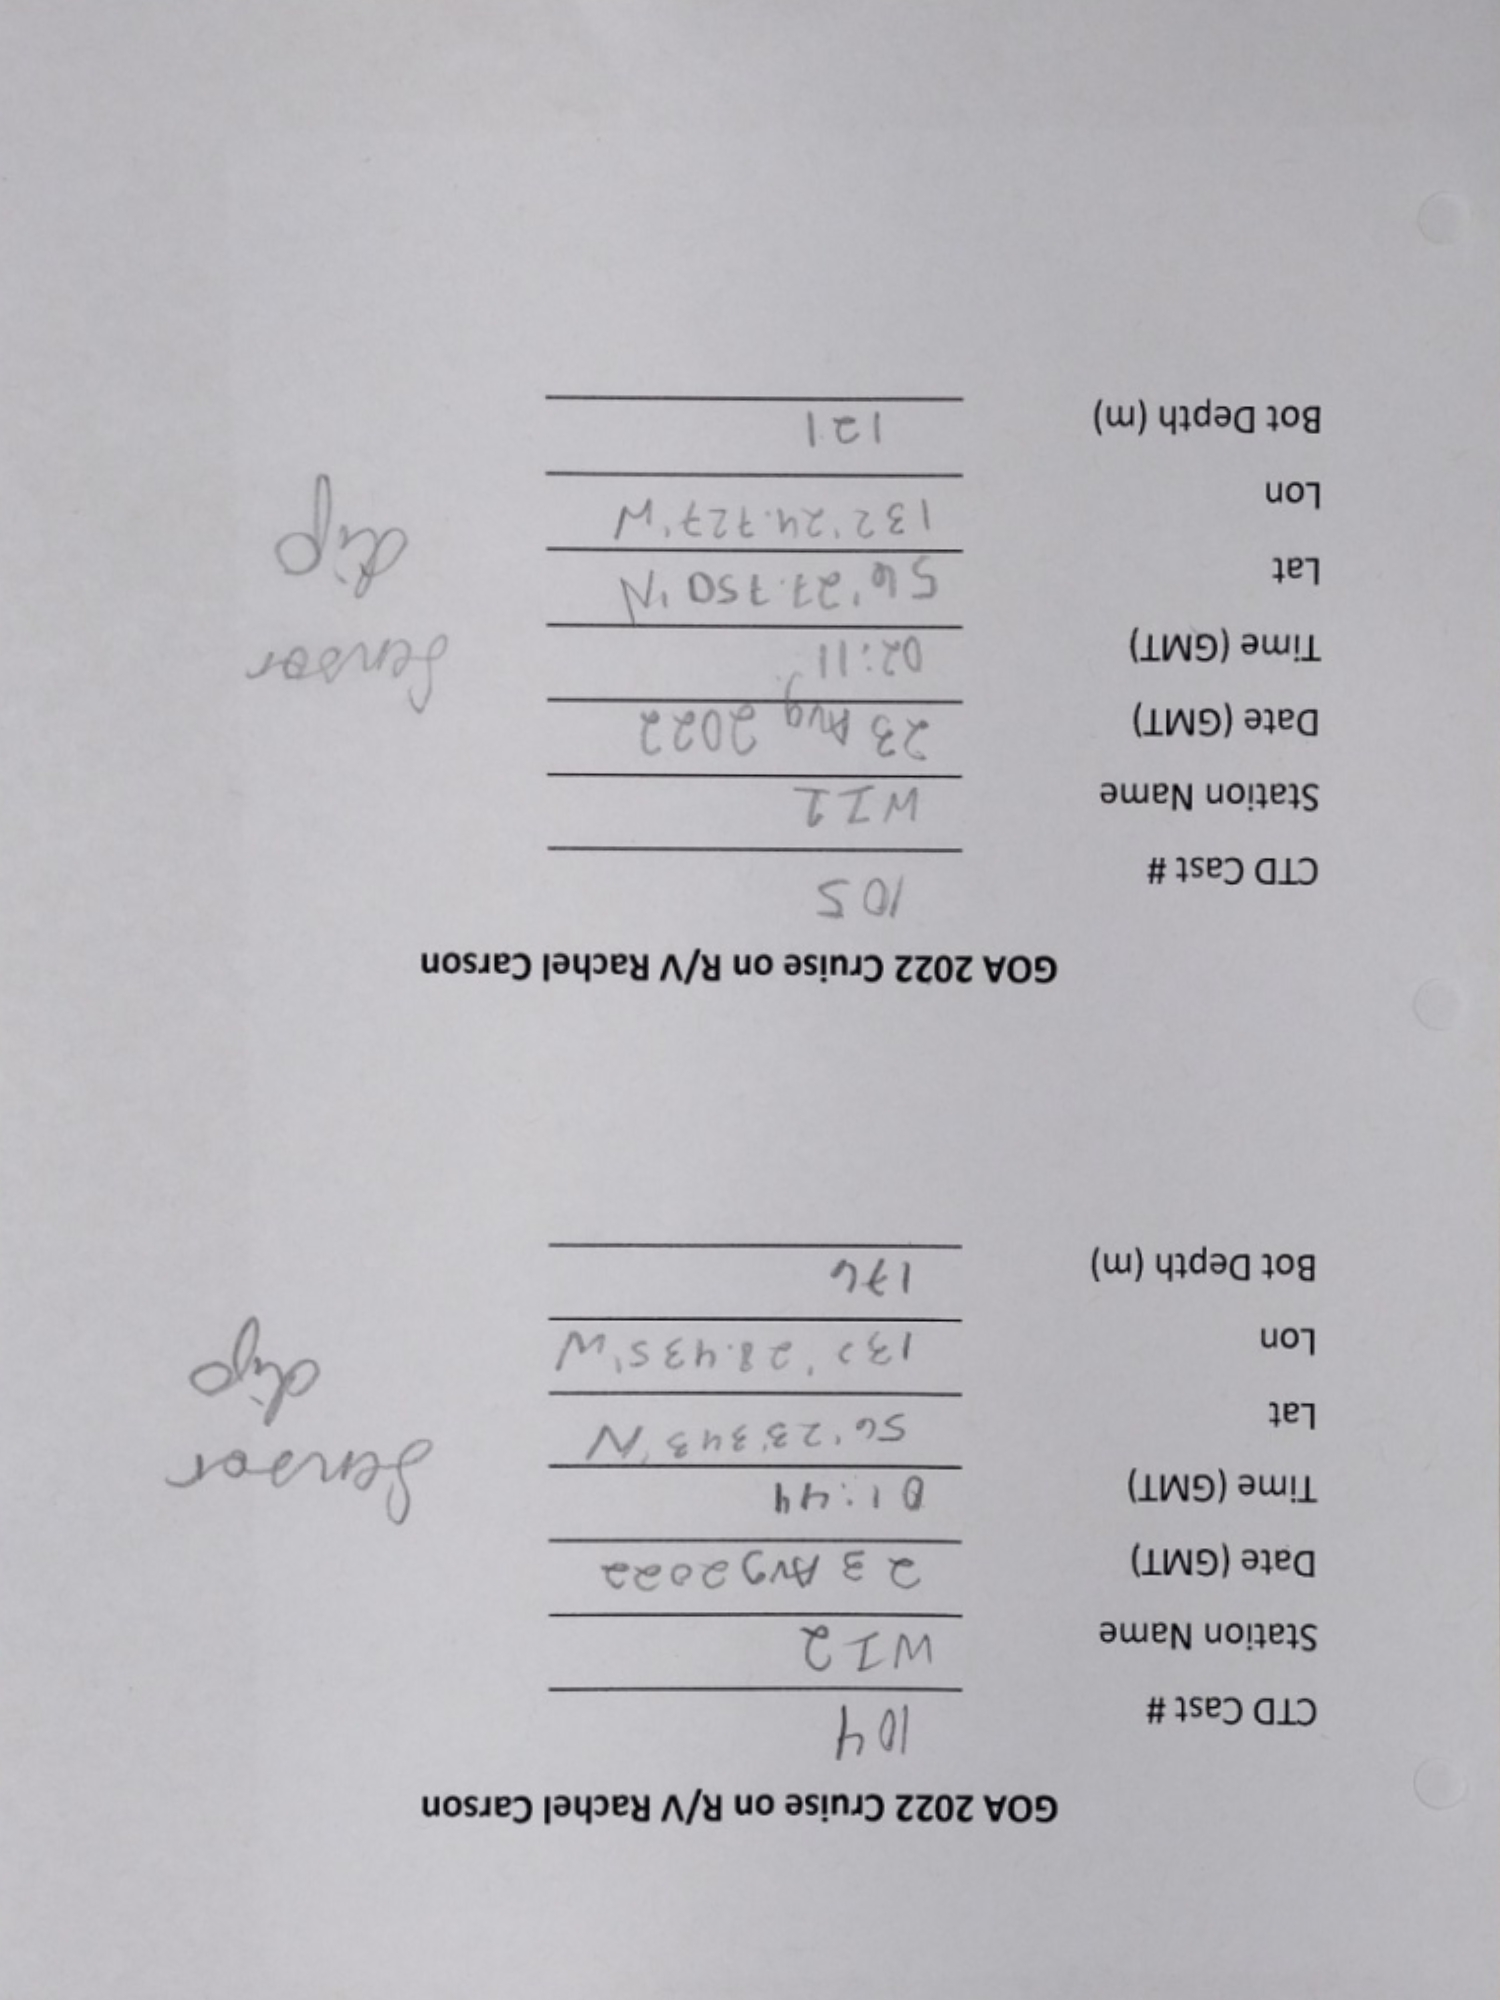 GOA 2022 Cruise on R/V Rachel Carson
CTD Cast # 104
Station Name WI2
Date (GMT) 23 Aug 2022
Time (GMT) 01:44
Lat 56'23'343'N
Lon 132'28.435'W
Bot Depth (m) 176
Sensor
dip
GOA 2022 Cruise on R/V Rachel Carson
CTD Cast # 105
Station Name WI1
Date (GMT) 23 Aug 2022
Time (GMT) 02:11
Lat 56'27.750'N
Lon 132'24.727'W
Bot Depth (m) 121
Sensor
dip